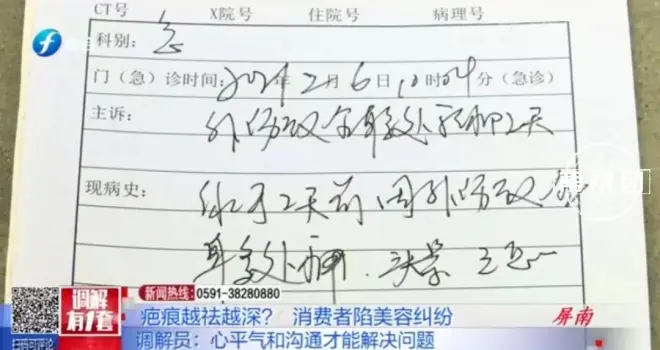 CT号 X院号 住院号 病理号
科别: 急
门（急）诊时间: 2021年2月6日10时04分（急诊）
主诉:
外伤致全身多处疼痛2天
现病史:
缘于2天前因外伤致全
身多处疼痛. 头晕
新闻热线: 0591-38280880
调解有1套
疤痕越祛越深？ 消费者陷美容纠纷
屏南
扫码可评论
调解员：心平气和沟通才能解决问题